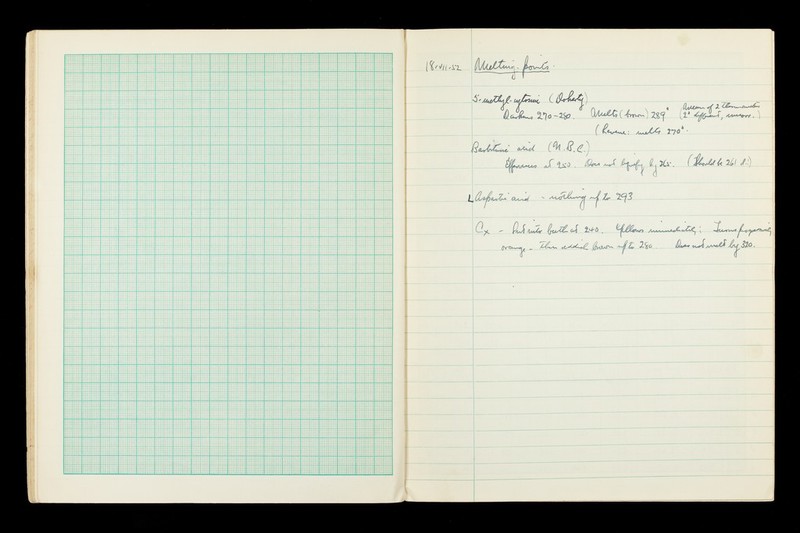 18.vii.52 Melting points.
5-methyl cytosine (Doherty)
Darkens 270-280. Melts (brown) 289° (Mean of 2 thermometers
2° different, uncorr.)
(Reverse: melts 270°.
Barbituric acid (N.B.C.)
Effervesces at 250. Does not liquify by 265. (Should be 251 d.)
L Aspartic acid - nothing up to 293
Cx - Put into bath at 240. Yellows immediately. Turns progressively
orange - then reddish brown up to 280 Does not melt by 320.